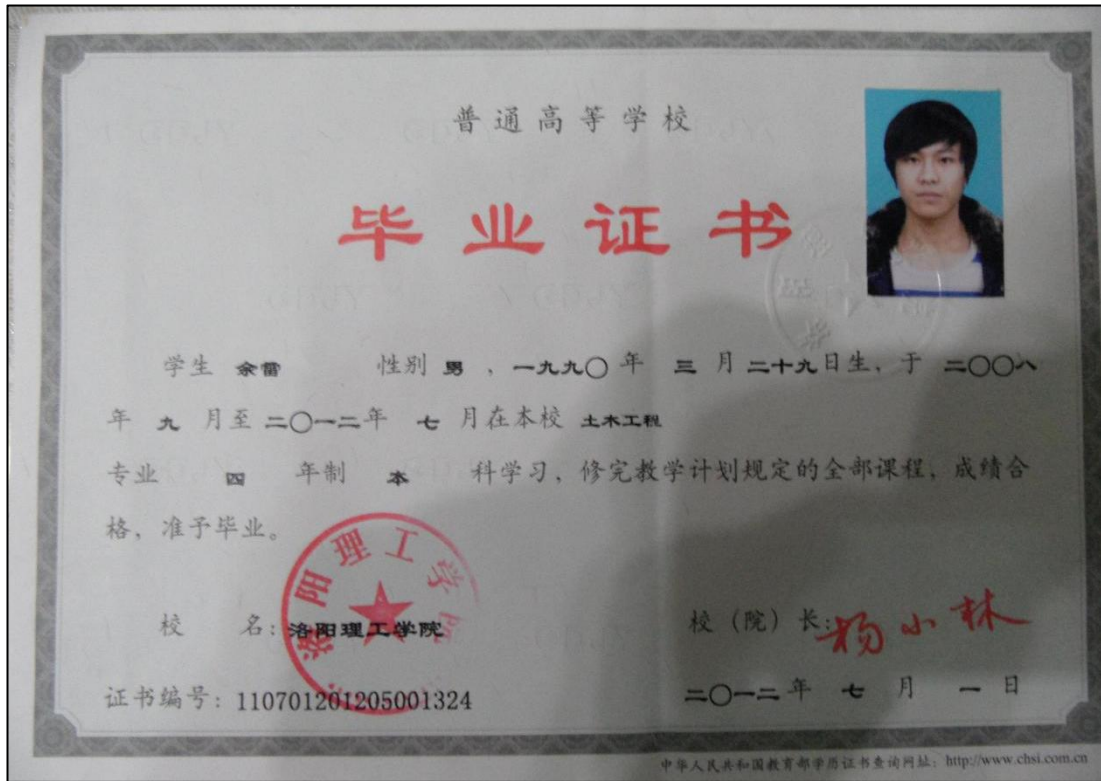 普通高等学校
毕业证书
学生 余雷 性别 男 ，一九九〇 年 三 月 二十九日生，于 二〇〇八
年 九 月至 二〇一二年 七 月在本校 土木工程
专业 四 年制 本 科学习，修完教学计划规定的全部课程，成绩合
格，准予毕业。
洛阳理工学院
校 名：洛阳理工学院 校（院）长：杨小林
证书编号：110701201205001324 二〇一二年 七 月 一 日
中华人民共和国教育部学历证书查询网址：http://www.chsi.com.cn